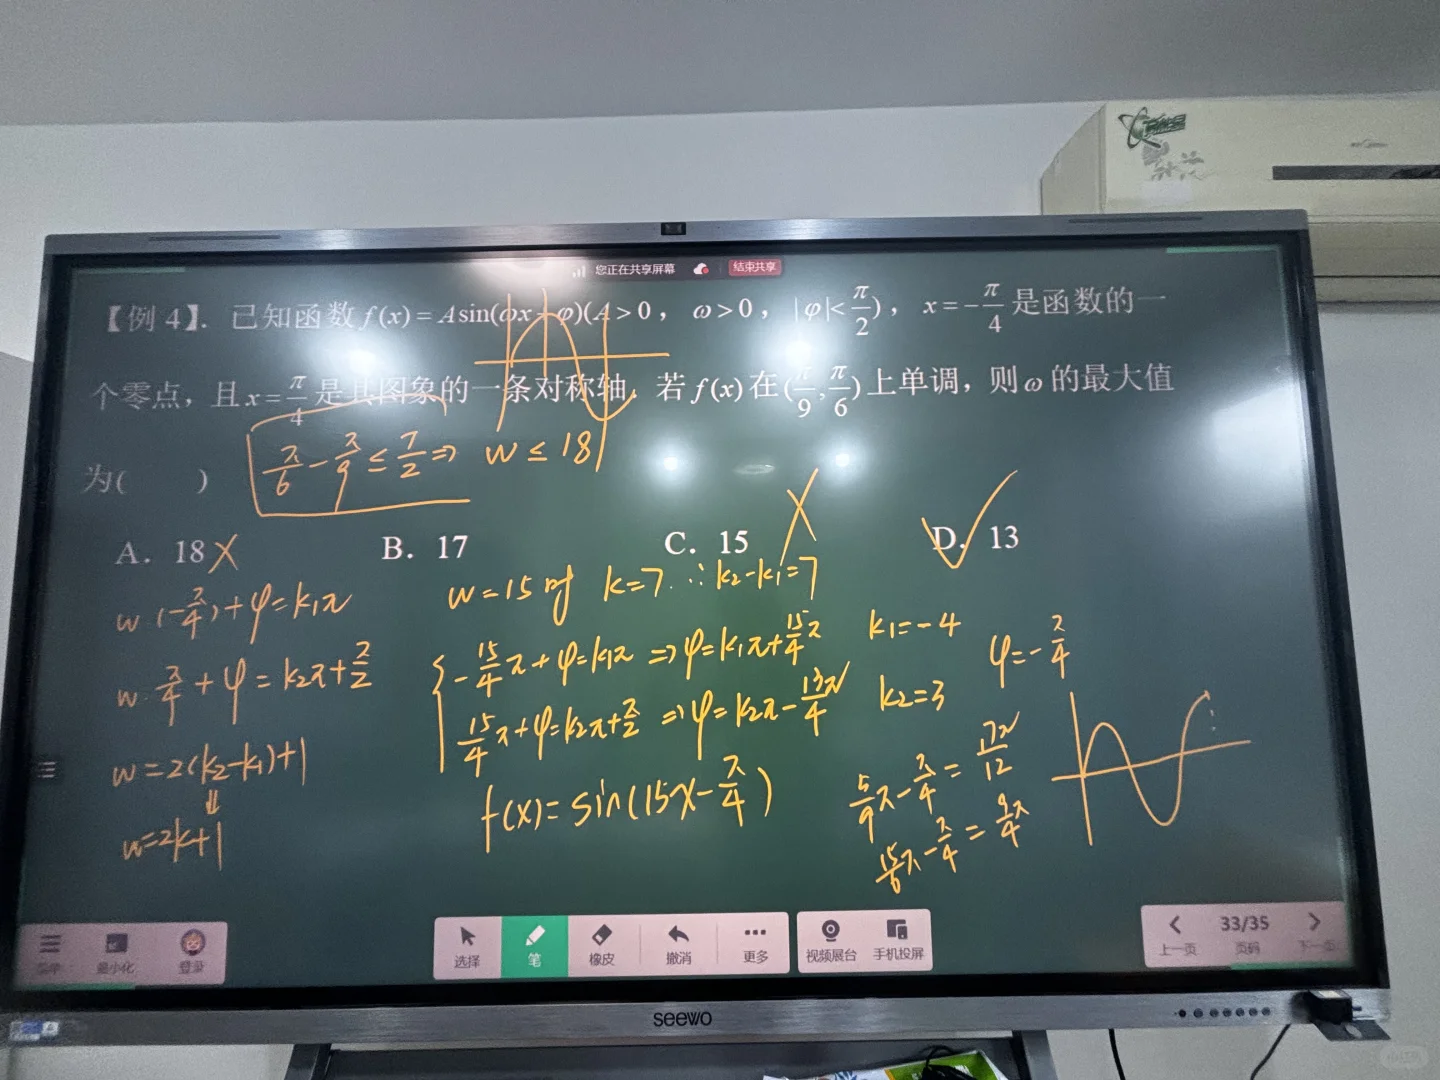 您正在共享屏幕 结束共享
【例 4】. 已知函数 f(x) = A sin(ωx + φ)(A > 0 , ω > 0 , |φ| < π/2) , x = -π/4 是函数的一
个零点，且 x = π/4 是其图象的一条对称轴. 若 f(x) 在 (π/9, π/6) 上单调，则 ω 的最大值
为( )
π/6 - π/9 ≤ T/2 ⇒ w ≤ 18
A. 18 B. 17 C. 15 D. 13
w·(-π/4)+φ=k₁π
w·π/4+φ=k₂π+π/2
w=2(k₂-k₁)+1
⇓
w=2k+1
w=15时 k=7. ∴k₂-k₁=7
{-15/4π+φ=k₁π ⇒φ=k₁π+15/4π k₁=-4
15/4π+φ=k₂π+π/2 ⇒φ=k₂π-13π/4 k₂=3
φ=-π/4
f(x)=sin(15x-π/4)
5/9π-π/4=17π/12
15/6π-π/4=9π/4
菜单 最小化 登录
选择 笔 橡皮 撤消 更多
视频展台 手机投屏
上一页 33/35 页码 下一页
seewo